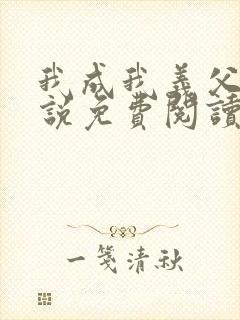 我成我義父
說免費閱讀
一箋清秋